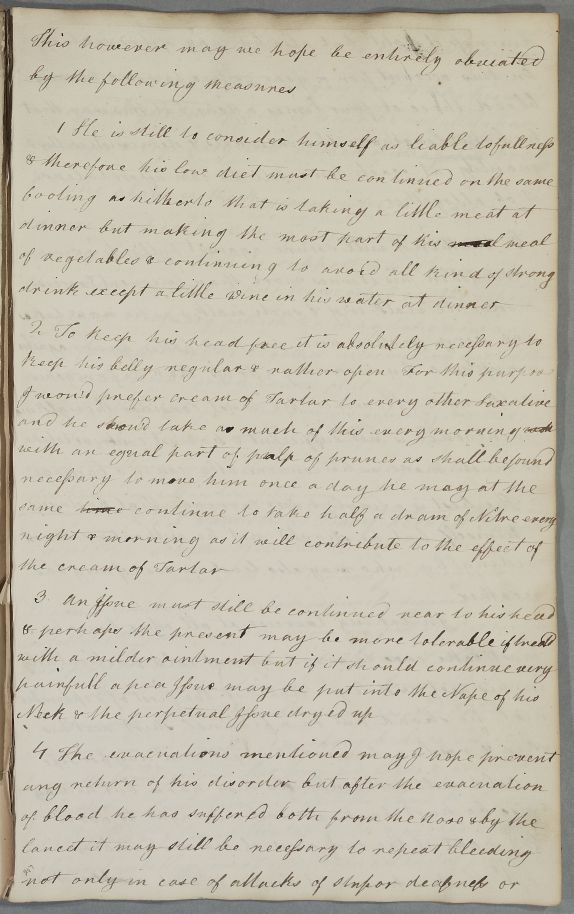 This however may we hope be entirely obviated
by the following measures
1 He is still to consider himself as liable to fullness
& therefore his low diet must be continued on the same
footing as hitherto that is taking a little meat at
dinner but making the most part of his meal
of vegetables & continuing to avoid all kind of strong
drink except a little Wine in his water at dinner
2 To keep his head free it is absolutely necessary to
keep his belly regular & rather open For this purpose
I wou'd prefer cream of Tartar to every other Laxative
and he shou'd take as much of this every morning
with an equal part of pulp of prunes as shall be found
necessary to move him once a day he may at the
same continue to take half a dram of Nitre every
night & morning as it will contribute to the effect of
the cream of Tartar
3 An Issue must still be continued near to his head
& perhaps the present may be more tolerable if treat
with a milder ointment but if it should continue very
painfull a pea Issue may be put into the Nape of his
Neck & the perpetual Issue dryed up
4 The evacuations mentioned may I hope prevent
any return of his disorder but after the evacuation
of blood he has suffered both from the Nose & by the
lancet it may still be necessary to repeat bleeding
not only in case of attacks of stupor deafness or